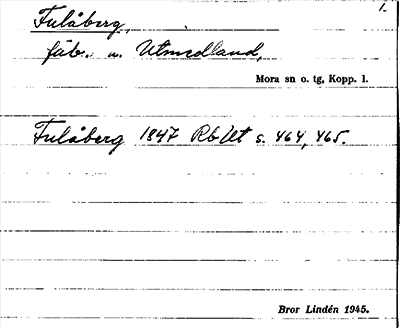 1.
Fulåberg,
fäb. u. Utmedland,
Mora sn o. tg, Kopp. l.
Fulåberg 1847 RbUt s. 464, 465.
Bror Lindén 1945.